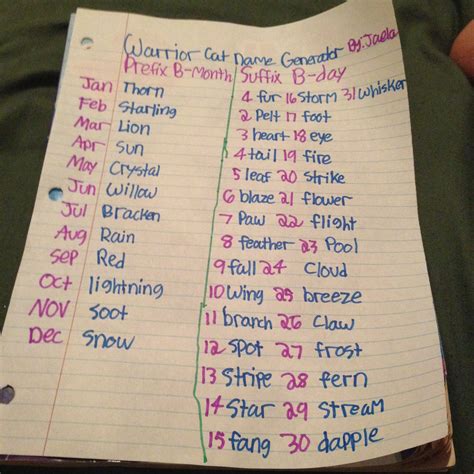 Warrior Cat Name Generator By: Jaela
Prefix B-Month
Jan Thorn
Feb Starling
Mar Lion
Apr Sun
May Crystal
Jun Willow
Jul Bracken
Aug Rain
Sep Red
Oct lightning
Nov Soot
Dec Snow
Suffix B-day
4 fur 16 Storm 31 Whisker
2 Pelt 17 foot
3 heart 18 eye
4 tail 19 fire
5 leaf 20 Strike
6 blaze 21 flower
7 Paw 22 flight
8 feather 23 Pool
9 fall 24 Cloud
10 Wing 25 breeze
11 branch 26 Claw
12 Spot 27 frost
13 Stripe 28 fern
14 Star 29 Stream
15 fang 30 dapple